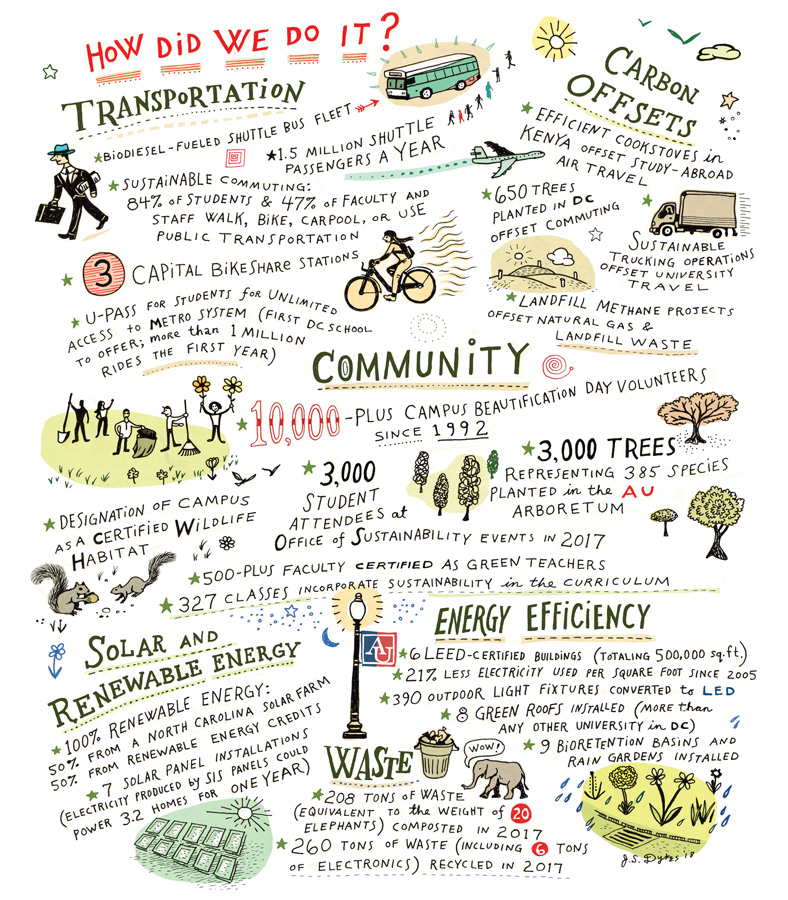 HOW DiD WE DO IT?
TRANSPORTATION
★BIODIESEL-FUELED SHUTTLE BUS FLEET
★1.5 MILLION SHUTTLE
PASSENGERS A YEAR
★SUSTAINABLE COMMUTING:
84% OF STUDENTS & 47% OF FACULTY AND
STAFF WALK, BIKE, CARPOOL, OR USE
PUBLIC TRANSPORTATION
★ 3 CAPITAL BIKESHARE STATIONS
★ U-PASS FOR STUDENTS for UNLIMITED
ACCESS to METRO SYSTEM (FIRST DC SCHOOL
TO OFFER; more than 1 MILLION
RIDES THE FIRST YEAR)
CARBON
OFFSETS
★EFFICIENT COOKSTOVES in
KENYA OFFSET STUDY-ABROAD
AIR TRAVEL
★650 TREES
PLANTED in DC
OFFSET COMMUTING
★
SUSTAINABLE
TRUCKING OPERATIONS
OFFSET UNIVERSITY
TRAVEL
★LANDFILL METHANE PROJECTS
OFFSET NATURAL GAS &
LANDFILL WASTE
COMMUNITY
★10,000-PLUS CAMPUS BEAUTIFICATION DAY VOLUNTEERS
SINCE 1992
★3,000
STUDENT
ATTENDEES at
OFFICE of SUSTAINABILITY EVENTS iN 2017
★3,000 TREES
REPRESENTING 385 SPECIES
PLANTED in the AU
ARBORETUM
★DESIGNATION OF CAMPUS
AS A CERTIFIED WILDLIFE
HABITAT
★500-PLUS FACULTY CERTIFIED AS GREEN TEACHERS
★327 CLASSES INCORPORATE SUSTAINABILITY in the CURRICULUM
SOLAR AND
RENEWABLE ENERGY
★100% RENEWABLE ENERGY:
50% FROM A NORTH CAROLINA SOLAR FARM
50% FROM RENEWABLE ENERGY CREDITS
★7 SOLAR PANEL INSTALLATIONS
(ELECTRICITY PRODUCED by SIS PANELS COULD
POWER 3.2 HOMES FOR ONE YEAR)
AU
ENERGY EFFICIENCY
★6 LEED-CERTIFIED BUILDINGS (TOTALING 500,000 sq.ft.)
★21% LESS ELECTRICITY USED PER SQUARE FOOT SINCE 2005
★390 OUTDOOR LIGHT FIXTURES CONVERTED to LED
★ 8 GREEN ROOFS INSTALLED (MORE than
ANY OTHER UNIVERSITY in DC)
★ 9 BIORETENTION BASINS AND
RAIN GARDENS INSTALLED
WASTE
WOW!
★208 TONS of WASTE
(EQUIVALENT to the WEIGHT of 20
ELEPHANTS) COMPOSTED iN 2017
★260 TONS OF WASTE (INCLUDING 6 TONS
OF ELECTRONICS) RECYCLED iN 2017
J.S. Dykes '18